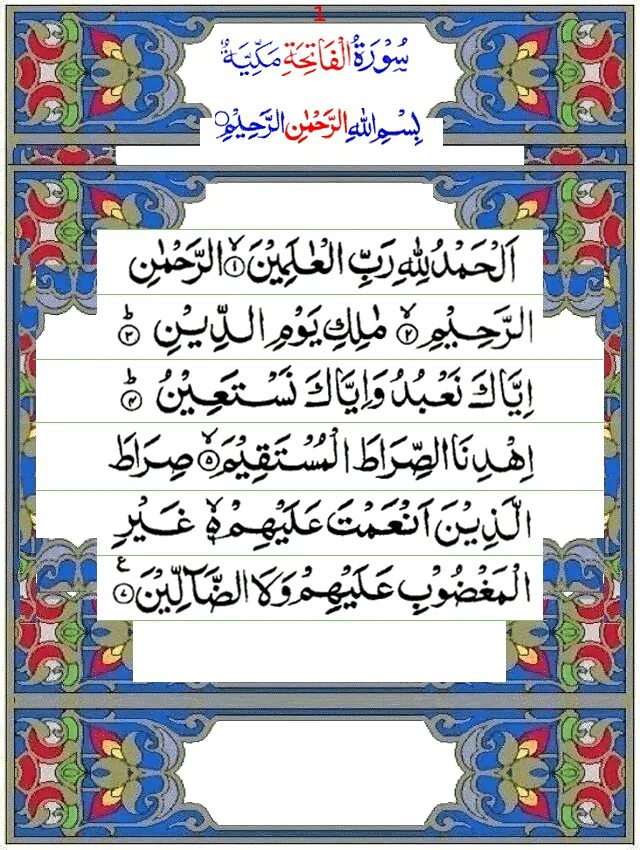 1
سُوْرَةُ الْفَاتِحَةِ مَكِّيَّةٌ
بِسْمِ اللّٰهِ الرَّحْمٰنِ الرَّحِيْمِ۝
اَلْحَمْدُ لِلّٰهِ رَبِّ الْعٰلَمِيْنَ ۙ﴿۱﴾ الرَّحْمٰنِ
الرَّحِيْمِ ۙ﴿۲﴾ مٰلِكِ يَوْمِ الدِّيْنِ ؕ﴿۳﴾
اِيَّاكَ نَعْبُدُ وَاِيَّاكَ نَسْتَعِيْنُ ؕ﴿۴﴾
اِهْدِنَا الصِّرَاطَ الْمُسْتَقِيْمَ ۙ﴿۵﴾ صِرَاطَ
الَّذِيْنَ اَنْعَمْتَ عَلَيْهِمْ ۙ۬ غَيْرِ
الْمَغْضُوْبِ عَلَيْهِمْ وَلَا الضَّآلِّيْنَ ﴿۷﴾ ع